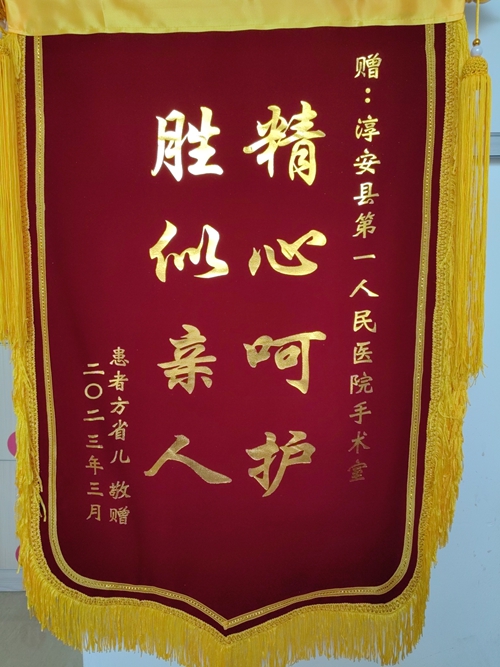 赠：淳安县第一人民医院手术室
精心呵护
胜似亲人
患者方省儿 敬赠
二〇二三年三月